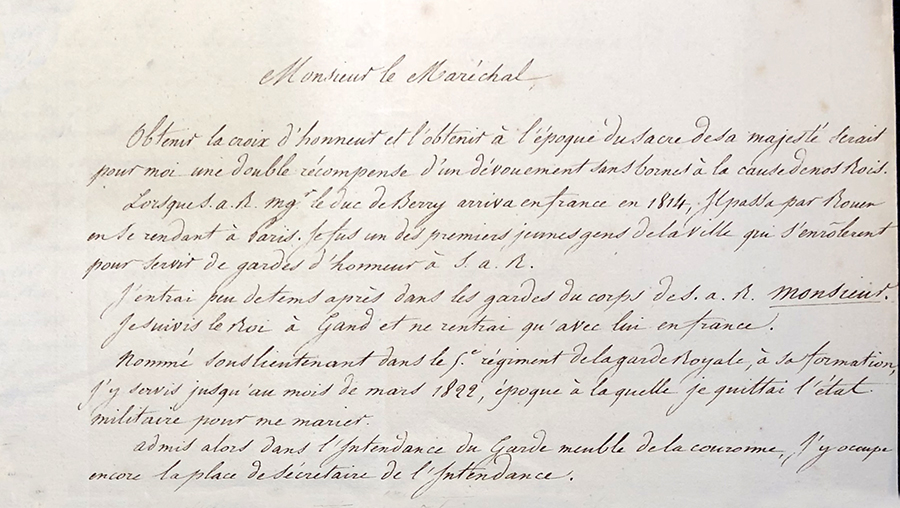 Monsieur le Maréchal,
Obtenir la croix d'honneur et l'obtenir à l'époque du sacre de sa majesté serait
pour moi une double récompense d'un dévouement sans bornes à la cause de nos Rois.
Lorsque S. a. R. mgr le duc de Berry arriva en france en 1814, Il passa par Rouen
en se rendant à Paris. Je fus un des premiers jeunes gens de la ville qui s'enrôlerent
pour servir de gardes d'honneur à S. a. R.
J'entrai peu de tems après dans les gardes du corps de S. a. R. monsieur.
Je suivis le Roi à Gand et ne rentrai qu'avec lui en france.
Nommé sous lieutenant dans le 5e régiment de la garde Royale, à sa formation,
j'y servis jusqu'au mois de mars 1822, époque à la quelle je quittai l'état
militaire pour me marier.
admis alors dans l'Intendance du Garde meuble de la couronne, J'y occupe
encore la place de Sécretaire de l'Intendance.